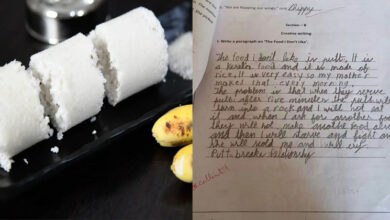 "We are flapping our wings", Chippy
Section - B
Creative writing
1. Write a paragraph on "The Food I Don't Like".
The food I don't like is putt. It
is a kerala food and it is made of
rice. It is very easy so my mother
makes that every morning.
The problem is that when they serve
putt. after five minutes the putt will
turn into a rock and I will not eat
it and when I ask for another food
they will not make another food also
and then I will starve and fight and
she will scold me and I will cry.
Putt breaks relationship
Excellent